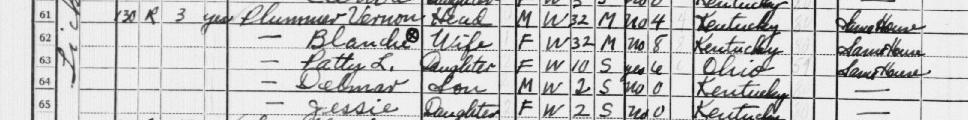 Daughter F W 5 S no 0 Kentucky
61 130 R 3 yes Plummer Vernon Head M W 32 M no 4 Kentucky Same House
62 — Blanche ⊗ Wife F W 32 M no 8 Kentucky Same House
63 — Patty L. Daughter F W 10 S yes 4 Ohio Same House
64 — Delmar Son M W 2 S no 0 Kentucky —
65 — Jessie Daughter F W 2 S no 0 Kentucky —